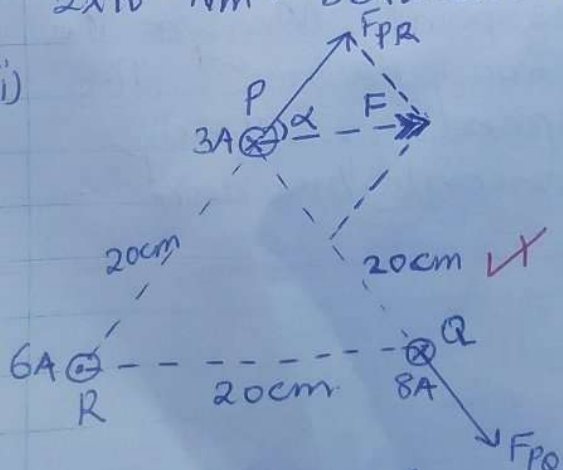 i)
F_PR
P
α
F
3A
20cm
20cm
6A
R
20cm
8A
Q
F_PQ